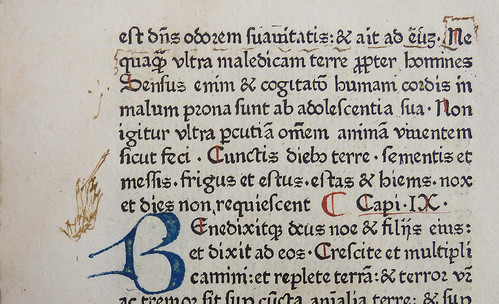 est dn̄s odorem suauitatis: & ait ad eū̄ʒ. Ne
quaq̄ȝ vltra maledicam terre ꝓpter homines
Sensus enim & cogitatō humani cordis in
malum prona sunt ab adolescentia sua. Non
igitur vltra ꝑcutiā om̄em animā viuentem
sicut feci. Cunctis diebꝰ terre. sementis et
messis. frigus et estus. estas & hiems. nox
et dies non requiescent Capi. IX.
Benedixitqꝫ deus noe & filijs eius:
et dixit ad eos. Crescite et multipli
camini: et replete terrā: & terror vr̄
ac tremor sit sup cūcta animalia terre: & sup